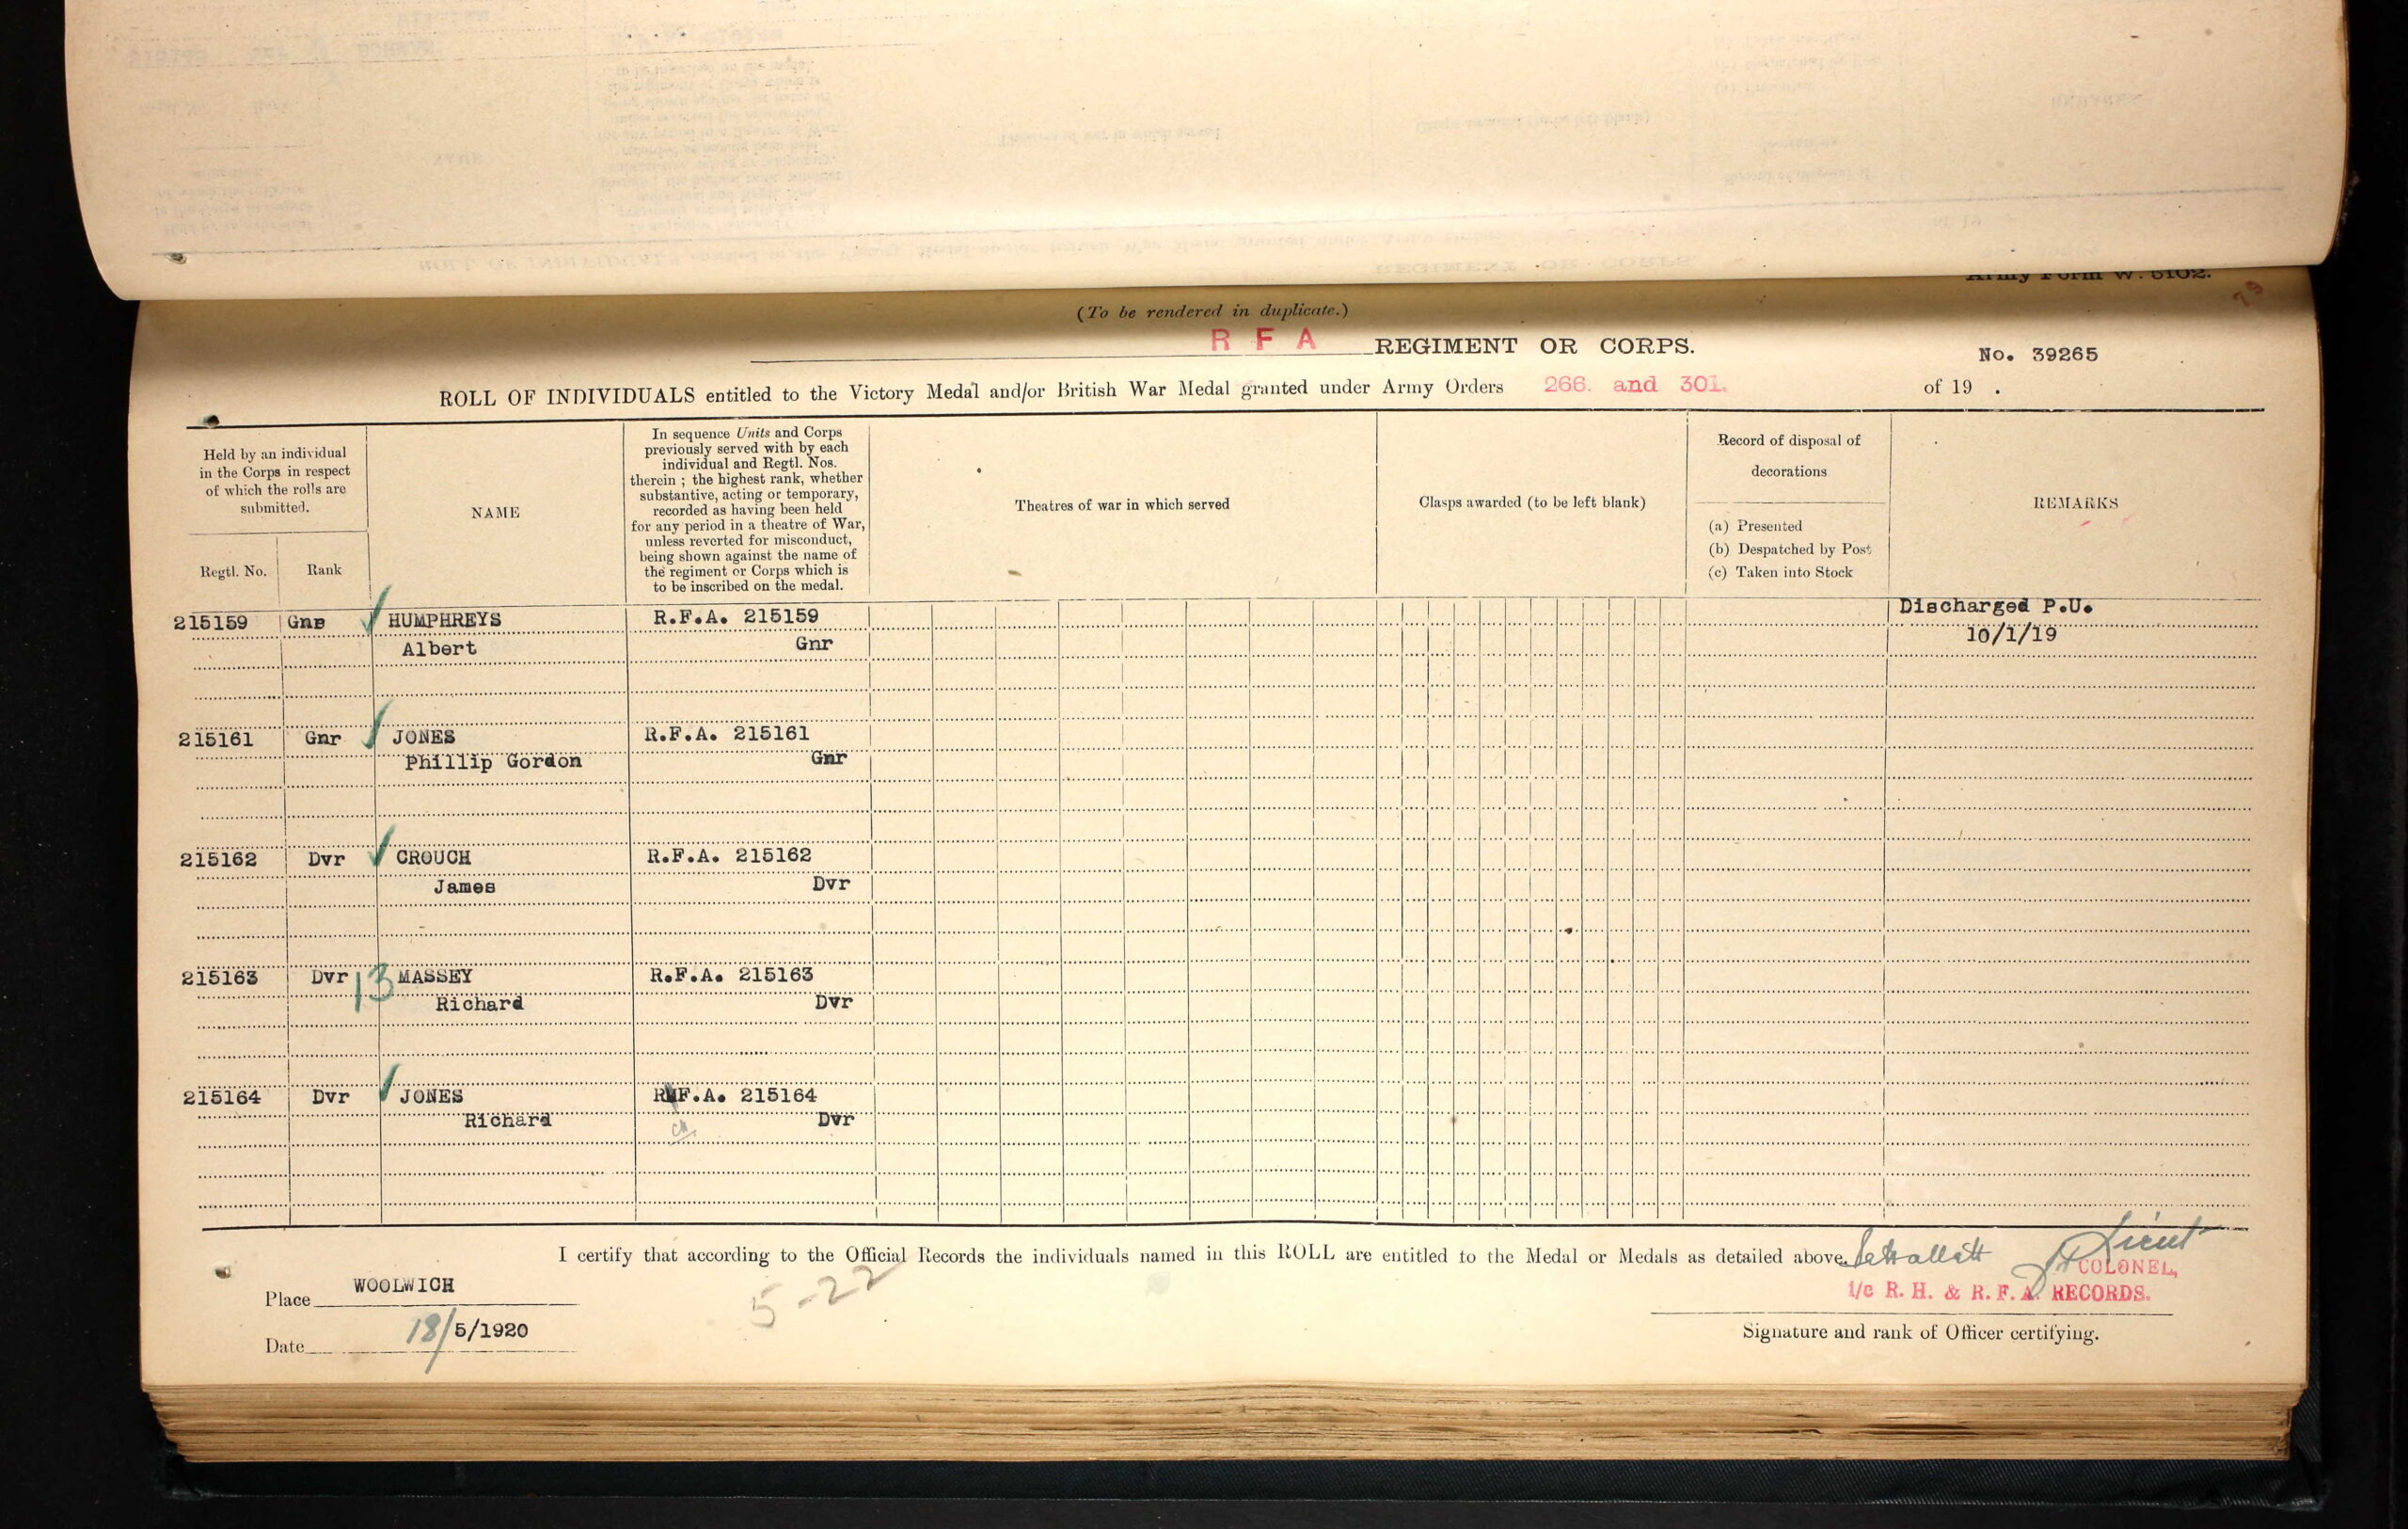 Army Form W. 5102.
79
(To be rendered in duplicate.)
R F A REGIMENT OR CORPS.
No. 39265
ROLL OF INDIVIDUALS entitled to the Victory Medal and/or British War Medal granted under Army Orders 266. and 301.
of 19 .
Held by an individual
in the Corps in respect
of which the rolls are
submitted.
Regtl. No. Rank
NAME
In sequence Units and Corps
previously served with by each
individual and Regtl. Nos.
therein ; the highest rank, whether
substantive, acting or temporary,
recorded as having been held
for any period in a theatre of War,
unless reverted for misconduct,
being shown against the name of
the regiment or Corps which is
to be inscribed on the medal.
Theatres of war in which served
Clasps awarded (to be left blank)
Record of disposal of
decorations
(a) Presented
(b) Despatched by Post
(c) Taken into Stock
REMARKS
215159 Gnr HUMPHREYS R.F.A. 215159 Discharged P.U.
Albert Gnr 10/1/19
215161 Gnr JONES R.F.A. 215161
Phillip Gordon Gnr
215162 Dvr CROUCH R.F.A. 215162
James Dvr
215163 Dvr 13 MASSEY R.F.A. 215163
Richard Dvr
215164 Dvr JONES R.F.A. 215164
Richard Dvr
I certify that according to the Official Records the individuals named in this ROLL are entitled to the Medal or Medals as detailed above.
Lieut
COLONEL,
i/c R. H. & R. F. A. RECORDS.
Signature and rank of Officer certifying.
Place WOOLWICH
Date 18/5/1920
5-22